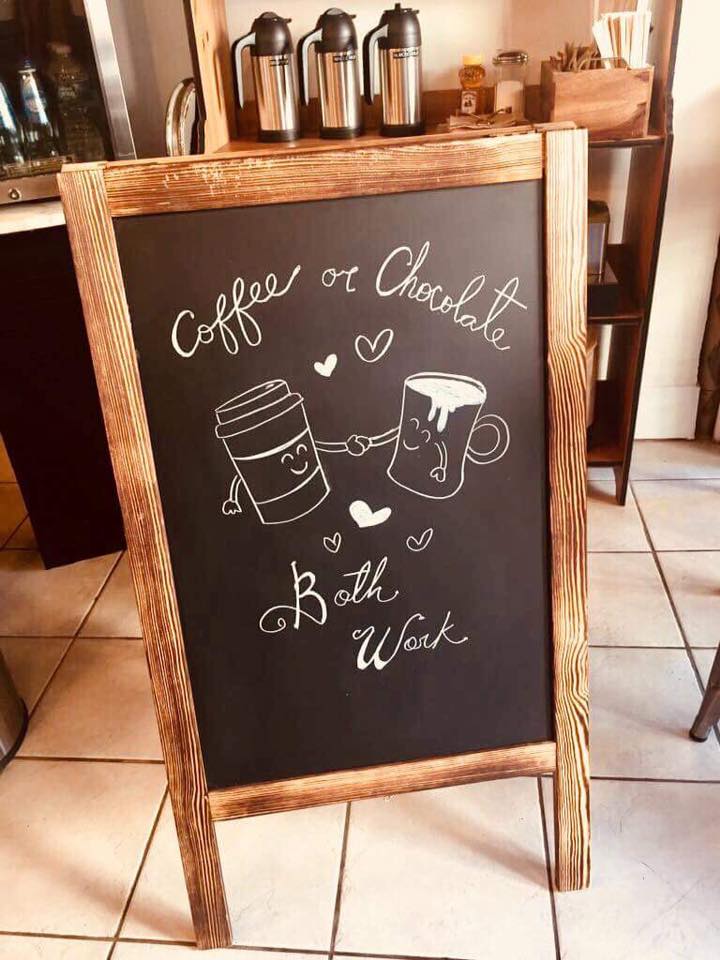 Coffee or Chocolate
Both
Work